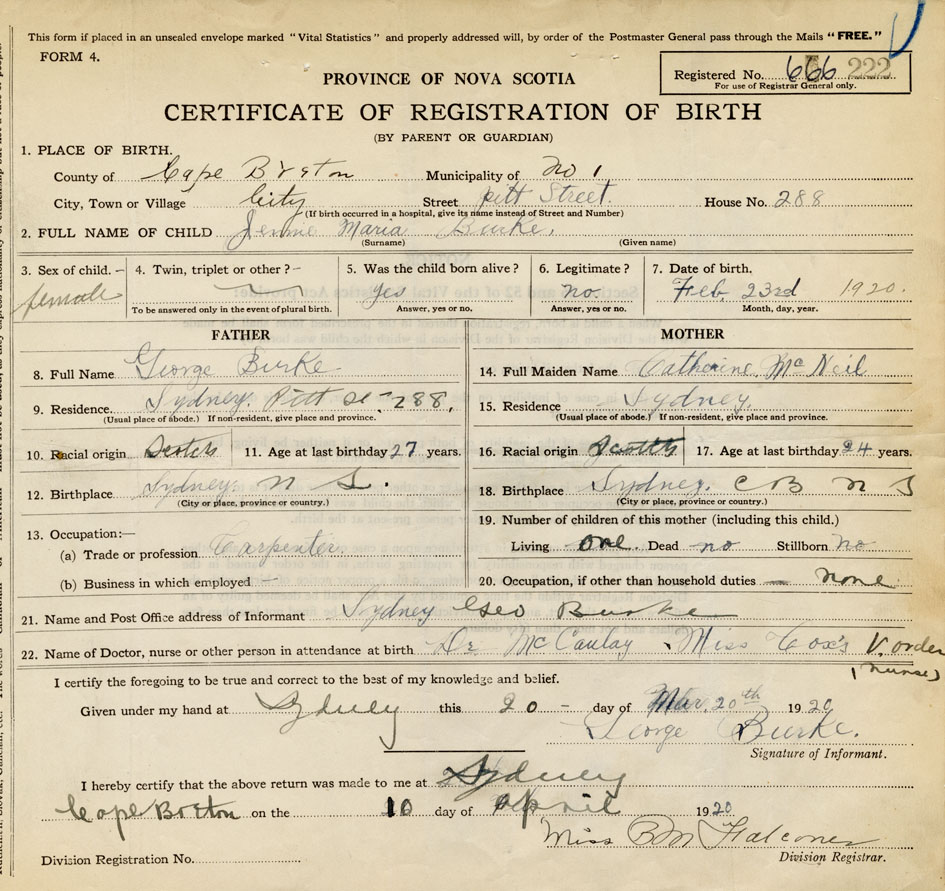 This form if placed in an unsealed envelope marked "Vital Statistics" and properly addressed will, by order of the Postmaster General pass through the Mails "FREE."
FORM 4.
PROVINCE OF NOVA SCOTIA
Registered No. 666 222
For use of Registrar General only.
CERTIFICATE OF REGISTRATION OF BIRTH
(BY PARENT OR GUARDIAN)
1. PLACE OF BIRTH.
County of Cape Breton Municipality of No 1
City, Town or Village City Street Pitt Street. House No. 288
(If birth occurred in a hospital, give its name instead of Street and Number)
2. FULL NAME OF CHILD Jennie Maria Burke.
(Surname) (Given name)
3. Sex of child.— 4. Twin, triplet or other?— 5. Was the child born alive? 6. Legitimate? 7. Date of birth.
female yes no. Feb. 23rd 1920.
To be answered only in the event of plural birth. Answer, yes or no. Answer, yes or no. Month, day, year.
FATHER MOTHER
8. Full Name George Burke 14. Full Maiden Name Catherine McNeil
9. Residence. Sydney. Pitt St - 288, 15. Residence Sydney.
(Usual place of abode.) If non-resident, give place and province. (Usual place of abode.) If non-resident, give place and province.
10. Racial origin Scotch 11. Age at last birthday 27 years. 16. Racial origin Scotch 17. Age at last birthday 24 years.
12. Birthplace Sydney. N S. 18. Birthplace Sydney. C B N S
(City or place, province or country.) (City or place, province or country.)
13. Occupation:— 19. Number of children of this mother (including this child.)
(a) Trade or profession Carpenter. Living one. Dead no Stillborn no
(b) Business in which employed — 20. Occupation, if other than household duties — none
21. Name and Post Office address of Informant Sydney Geo Burke
22. Name of Doctor, nurse or other person in attendance at birth Dr McCaulay Miss Cox's V. order
(nurse)
I certify the foregoing to be true and correct to the best of my knowledge and belief.
Given under my hand at Sydney this 20 - day of Mar. 20th 1920
George Burke.
Signature of Informant.
I hereby certify that the above return was made to me at Sydney
Cape Breton on the 10 day of April 1920
Miss B M Falconer
Division Registration No. Division Registrar.